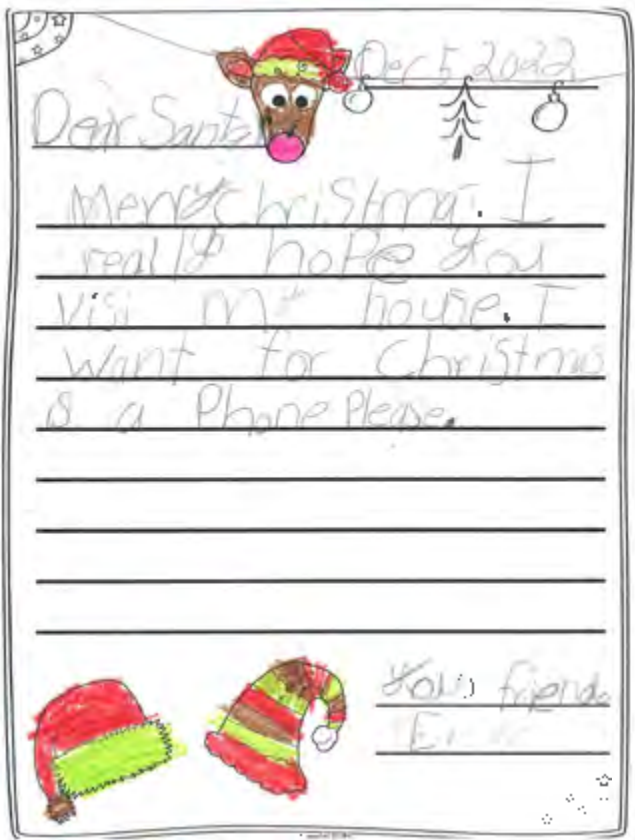 Dec 5 2022
Dear Santa
Merry Christma. I
really hope you
visi my house. I
want for Christmas
is a Phone Please.
Your friend